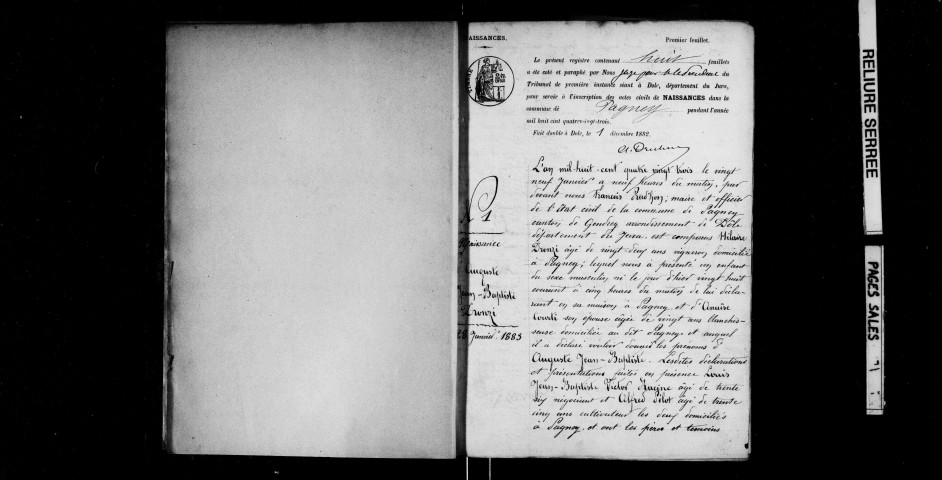 NAISSANCES.
Premier feuillet.
Le présent registre contenant huit feuillets
a été coté et paraphé par Nous Juge pour le Président du
Tribunal de première instance séant à Dole, département du Jura,
pour servir à l'inscription des actes civils de NAISSANCES dans la
commune de Pagney pendant l'année
mil huit cent quatre-vingt-trois.
Fait double à Dole, le 1 décembre 1882.
L'an mil-huit-cent quatre vingt trois le vingt
neuf Janvier à neuf heures du matin, par
devant nous François, maire et officier
de l'état civil de la commune de Pagney
canton de Gendrey arrondissement de Dole
département du Jura. est comparu Hilaire
Dronzi âgé de vingt-deux ans vigneron domicilié
à Pagney; lequel nous a présenté un enfant
du sexe masculin né le jour d'hier vingt huit
courant à cinq heures du matin de lui décla-
rant en sa maison à Pagney et d'
son épouse âgée de vingt ans blanchis-
seuse domiciliée au dit Pagney et auquel
il a déclaré vouloir donner les prénoms d'
Auguste Jean-Baptiste. Lesdites déclarations
et présentations faites en présence Louis
Jean-Baptiste Victor Racine âgé de trente
six négociant et Alfred Pilot âgé de trente
cinq ans cultivateur les deux domiciliés
à Pagney. et ont les père et témoins
N° 1
Naissance
Auguste
Jean-Baptiste
Dronzi
28 Janvier 1883
RELIURE SERREE
PAGES SALES